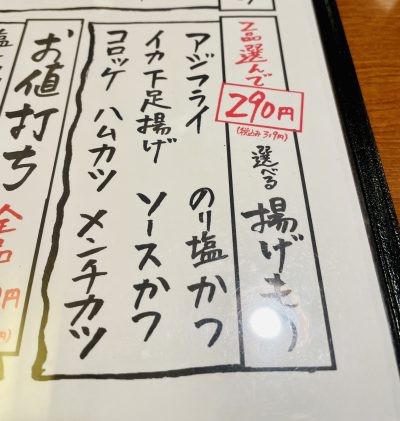 2品選んで
290円
(税込み319円)
選べる 揚げもり
アジフライ のり塩かつ
イカ下足揚げ ソースかつ
コロッケ ハムカツ メンチカツ
お値打ち 全品
円
塩